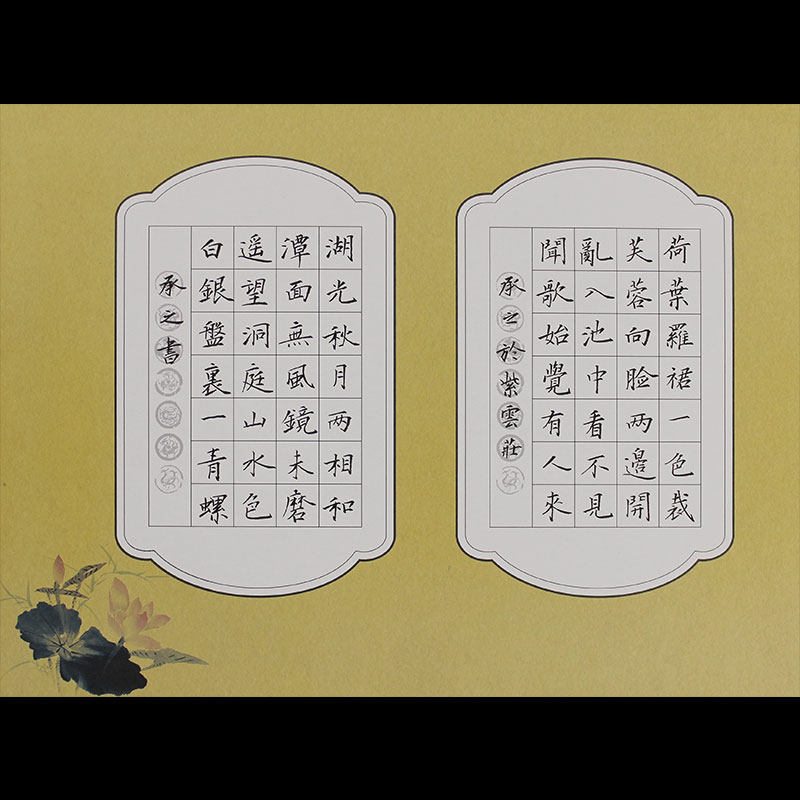 荷葉羅裙一色裁
芙蓉向脸两邉開
亂入池中看不見
聞歌始覺有人來
承之於紫雲莊
湖光秋月两相和
潭面無風鏡未磨
遥望洞庭山水色
白銀盤裏一青螺
承之書